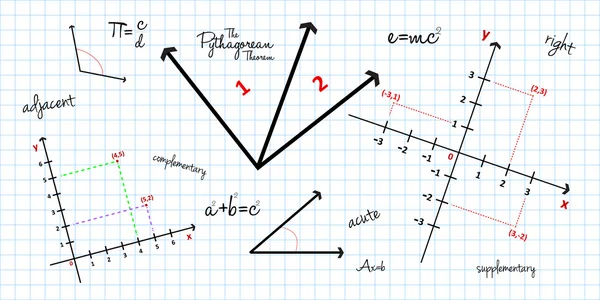 π= c
d
The
Pythagorean
Theorem
e=mc²
right
adjacent
1
2
complementary
a²+b²=c²
acute
Ax=b
supplementary
y
6
5
4
3
2
1
0
1
2
3
4
5
6
x
(4,5)
(5,2)
y
3
2
1
0
-3
-2
-1
1
2
3
x
-1
-2
-3
(-3,1)
(2,3)
(3,-2)